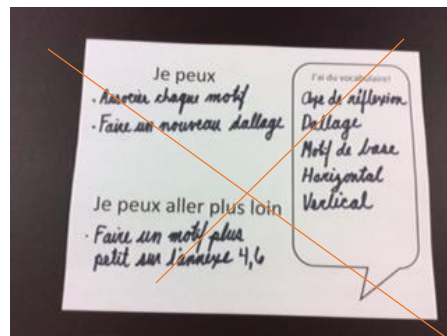 Je peux
· Associer chaque motif
· Faire un nouveau dallage
Je peux aller plus loin
· Faire un motif plus
petit sur l'annexe 4,6
J'ai du vocabulaire!
Axe de réflexion
Dallage
Motif de base
Horizontal
Vertical